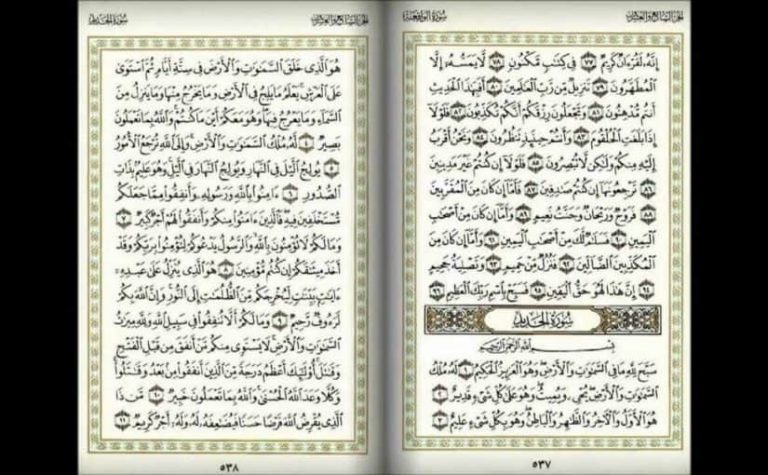 الجزء السابع والعشرون سُورَةُ الوَاقِعَة
إِنَّهُۥ لَقُرْءَانٌ كَرِيمٌ ٧٧ فِى كِتَٰبٍ مَّكْنُونٍ ٧٨ لَّا يَمَسُّهُۥٓ إِلَّا
ٱلْمُطَهَّرُونَ ٧٩ تَنزِيلٌ مِّن رَّبِّ ٱلْعَٰلَمِينَ ٨٠ أَفَبِهَٰذَا ٱلْحَدِيثِ
أَنتُم مُّدْهِنُونَ ٨١ وَتَجْعَلُونَ رِزْقَكُمْ أَنَّكُمْ تُكَذِّبُونَ ٨٢ فَلَوْلَآ
إِذَا بَلَغَتِ ٱلْحُلْقُومَ ٨٣ وَأَنتُمْ حِينَئِذٍ تَنظُرُونَ ٨٤ وَنَحْنُ أَقْرَبُ
إِلَيْهِ مِنكُمْ وَلَٰكِن لَّا تُبْصِرُونَ ٨٥ فَلَوْلَآ إِن كُنتُمْ غَيْرَ مَدِينِينَ
٨٦ تَرْجِعُونَهَآ إِن كُنتُمْ صَٰدِقِينَ ٨٧ فَأَمَّآ إِن كَانَ مِنَ ٱلْمُقَرَّبِينَ
٨٨ فَرَوْحٌ وَرَيْحَانٌ وَجَنَّتُ نَعِيمٍ ٨٩ وَأَمَّآ إِن كَانَ مِنْ أَصْحَٰبِ
ٱلْيَمِينِ ٩٠ فَسَلَٰمٌ لَّكَ مِنْ أَصْحَٰبِ ٱلْيَمِينِ ٩١ وَأَمَّآ إِن كَانَ مِنَ
ٱلْمُكَذِّبِينَ ٱلضَّآلِّينَ ٩٢ فَنُزُلٌ مِّنْ حَمِيمٍ ٩٣ وَتَصْلِيَةُ جَحِيمٍ
٩٤ إِنَّ هَٰذَا لَهُوَ حَقُّ ٱلْيَقِينِ ٩٥ فَسَبِّحْ بِٱسْمِ رَبِّكَ ٱلْعَظِيمِ ٩٦
سُورَةُ الحَدِيد
بِسْمِ ٱللَّهِ ٱلرَّحْمَٰنِ ٱلرَّحِيمِ
سَبَّحَ لِلَّهِ مَا فِى ٱلسَّمَٰوَٰتِ وَٱلْأَرْضِ وَهُوَ ٱلْعَزِيزُ ٱلْحَكِيمُ ١ لَهُۥ مُلْكُ
ٱلسَّمَٰوَٰتِ وَٱلْأَرْضِ يُحْىِۦ وَيُمِيتُ وَهُوَ عَلَىٰ كُلِّ شَىْءٍ قَدِيرٌ ٢
هُوَ ٱلْأَوَّلُ وَٱلْءَاخِرُ وَٱلظَّٰهِرُ وَٱلْبَاطِنُ وَهُوَ بِكُلِّ شَىْءٍ عَلِيمٌ ٣
٥٣٧
الجزء السابع والعشرون سُورَةُ الحَدِيد
هُوَ ٱلَّذِى خَلَقَ ٱلسَّمَٰوَٰتِ وَٱلْأَرْضَ فِى سِتَّةِ أَيَّامٍ ثُمَّ ٱسْتَوَىٰ
عَلَى ٱلْعَرْشِ يَعْلَمُ مَا يَلِجُ فِى ٱلْأَرْضِ وَمَا يَخْرُجُ مِنْهَا وَمَا يَنزِلُ مِنَ
ٱلسَّمَآءِ وَمَا يَعْرُجُ فِيهَا وَهُوَ مَعَكُمْ أَيْنَ مَا كُنتُمْ وَٱللَّهُ بِمَا تَعْمَلُونَ
بَصِيرٌ ٤ لَّهُۥ مُلْكُ ٱلسَّمَٰوَٰتِ وَٱلْأَرْضِ وَإِلَى ٱللَّهِ تُرْجَعُ ٱلْأُمُورُ
٥ يُولِجُ ٱلَّيْلَ فِى ٱلنَّهَارِ وَيُولِجُ ٱلنَّهَارَ فِى ٱلَّيْلِ وَهُوَ عَلِيمٌۢ بِذَاتِ
ٱلصُّدُورِ ٦ ءَامِنُوا۟ بِٱللَّهِ وَرَسُولِهِۦ وَأَنفِقُوا۟ مِمَّا جَعَلَكُم
مُّسْتَخْلَفِينَ فِيهِ فَٱلَّذِينَ ءَامَنُوا۟ مِنكُمْ وَأَنفَقُوا۟ لَهُمْ أَجْرٌ كَبِيرٌ ٧
وَمَا لَكُمْ لَا تُؤْمِنُونَ بِٱللَّهِ وَٱلرَّسُولُ يَدْعُوكُمْ لِتُؤْمِنُوا۟ بِرَبِّكُمْ وَقَدْ
أَخَذَ مِيثَٰقَكُمْ إِن كُنتُم مُّؤْمِنِينَ ٨ هُوَ ٱلَّذِى يُنَزِّلُ عَلَىٰ عَبْدِهِۦٓ
ءَايَٰتٍۭ بَيِّنَٰتٍ لِّيُخْرِجَكُم مِّنَ ٱلظُّلُمَٰتِ إِلَى ٱلنُّورِ وَإِنَّ ٱللَّهَ بِكُمْ
لَرَءُوفٌ رَّحِيمٌ ٩ وَمَا لَكُمْ أَلَّا تُنفِقُوا۟ فِى سَبِيلِ ٱللَّهِ وَلِلَّهِ مِيرَٰثُ
ٱلسَّمَٰوَٰتِ وَٱلْأَرْضِ لَا يَسْتَوِى مِنكُم مَّنْ أَنفَقَ مِن قَبْلِ ٱلْفَتْحِ
وَقَٰتَلَ أُو۟لَٰٓئِكَ أَعْظَمُ دَرَجَةً مِّنَ ٱلَّذِينَ أَنفَقُوا۟ مِنۢ بَعْدُ وَقَٰتَلُوا۟
وَكُلًّا وَعَدَ ٱللَّهُ ٱلْحُسْنَىٰ وَٱللَّهُ بِمَا تَعْمَلُونَ خَبِيرٌ ١٠ مَّن ذَا
ٱلَّذِى يُقْرِضُ ٱللَّهَ قَرْضًا حَسَنًا فَيُضَٰعِفَهُۥ لَهُۥ وَلَهُۥٓ أَجْرٌ كَرِيمٌ ١١
٥٣٨